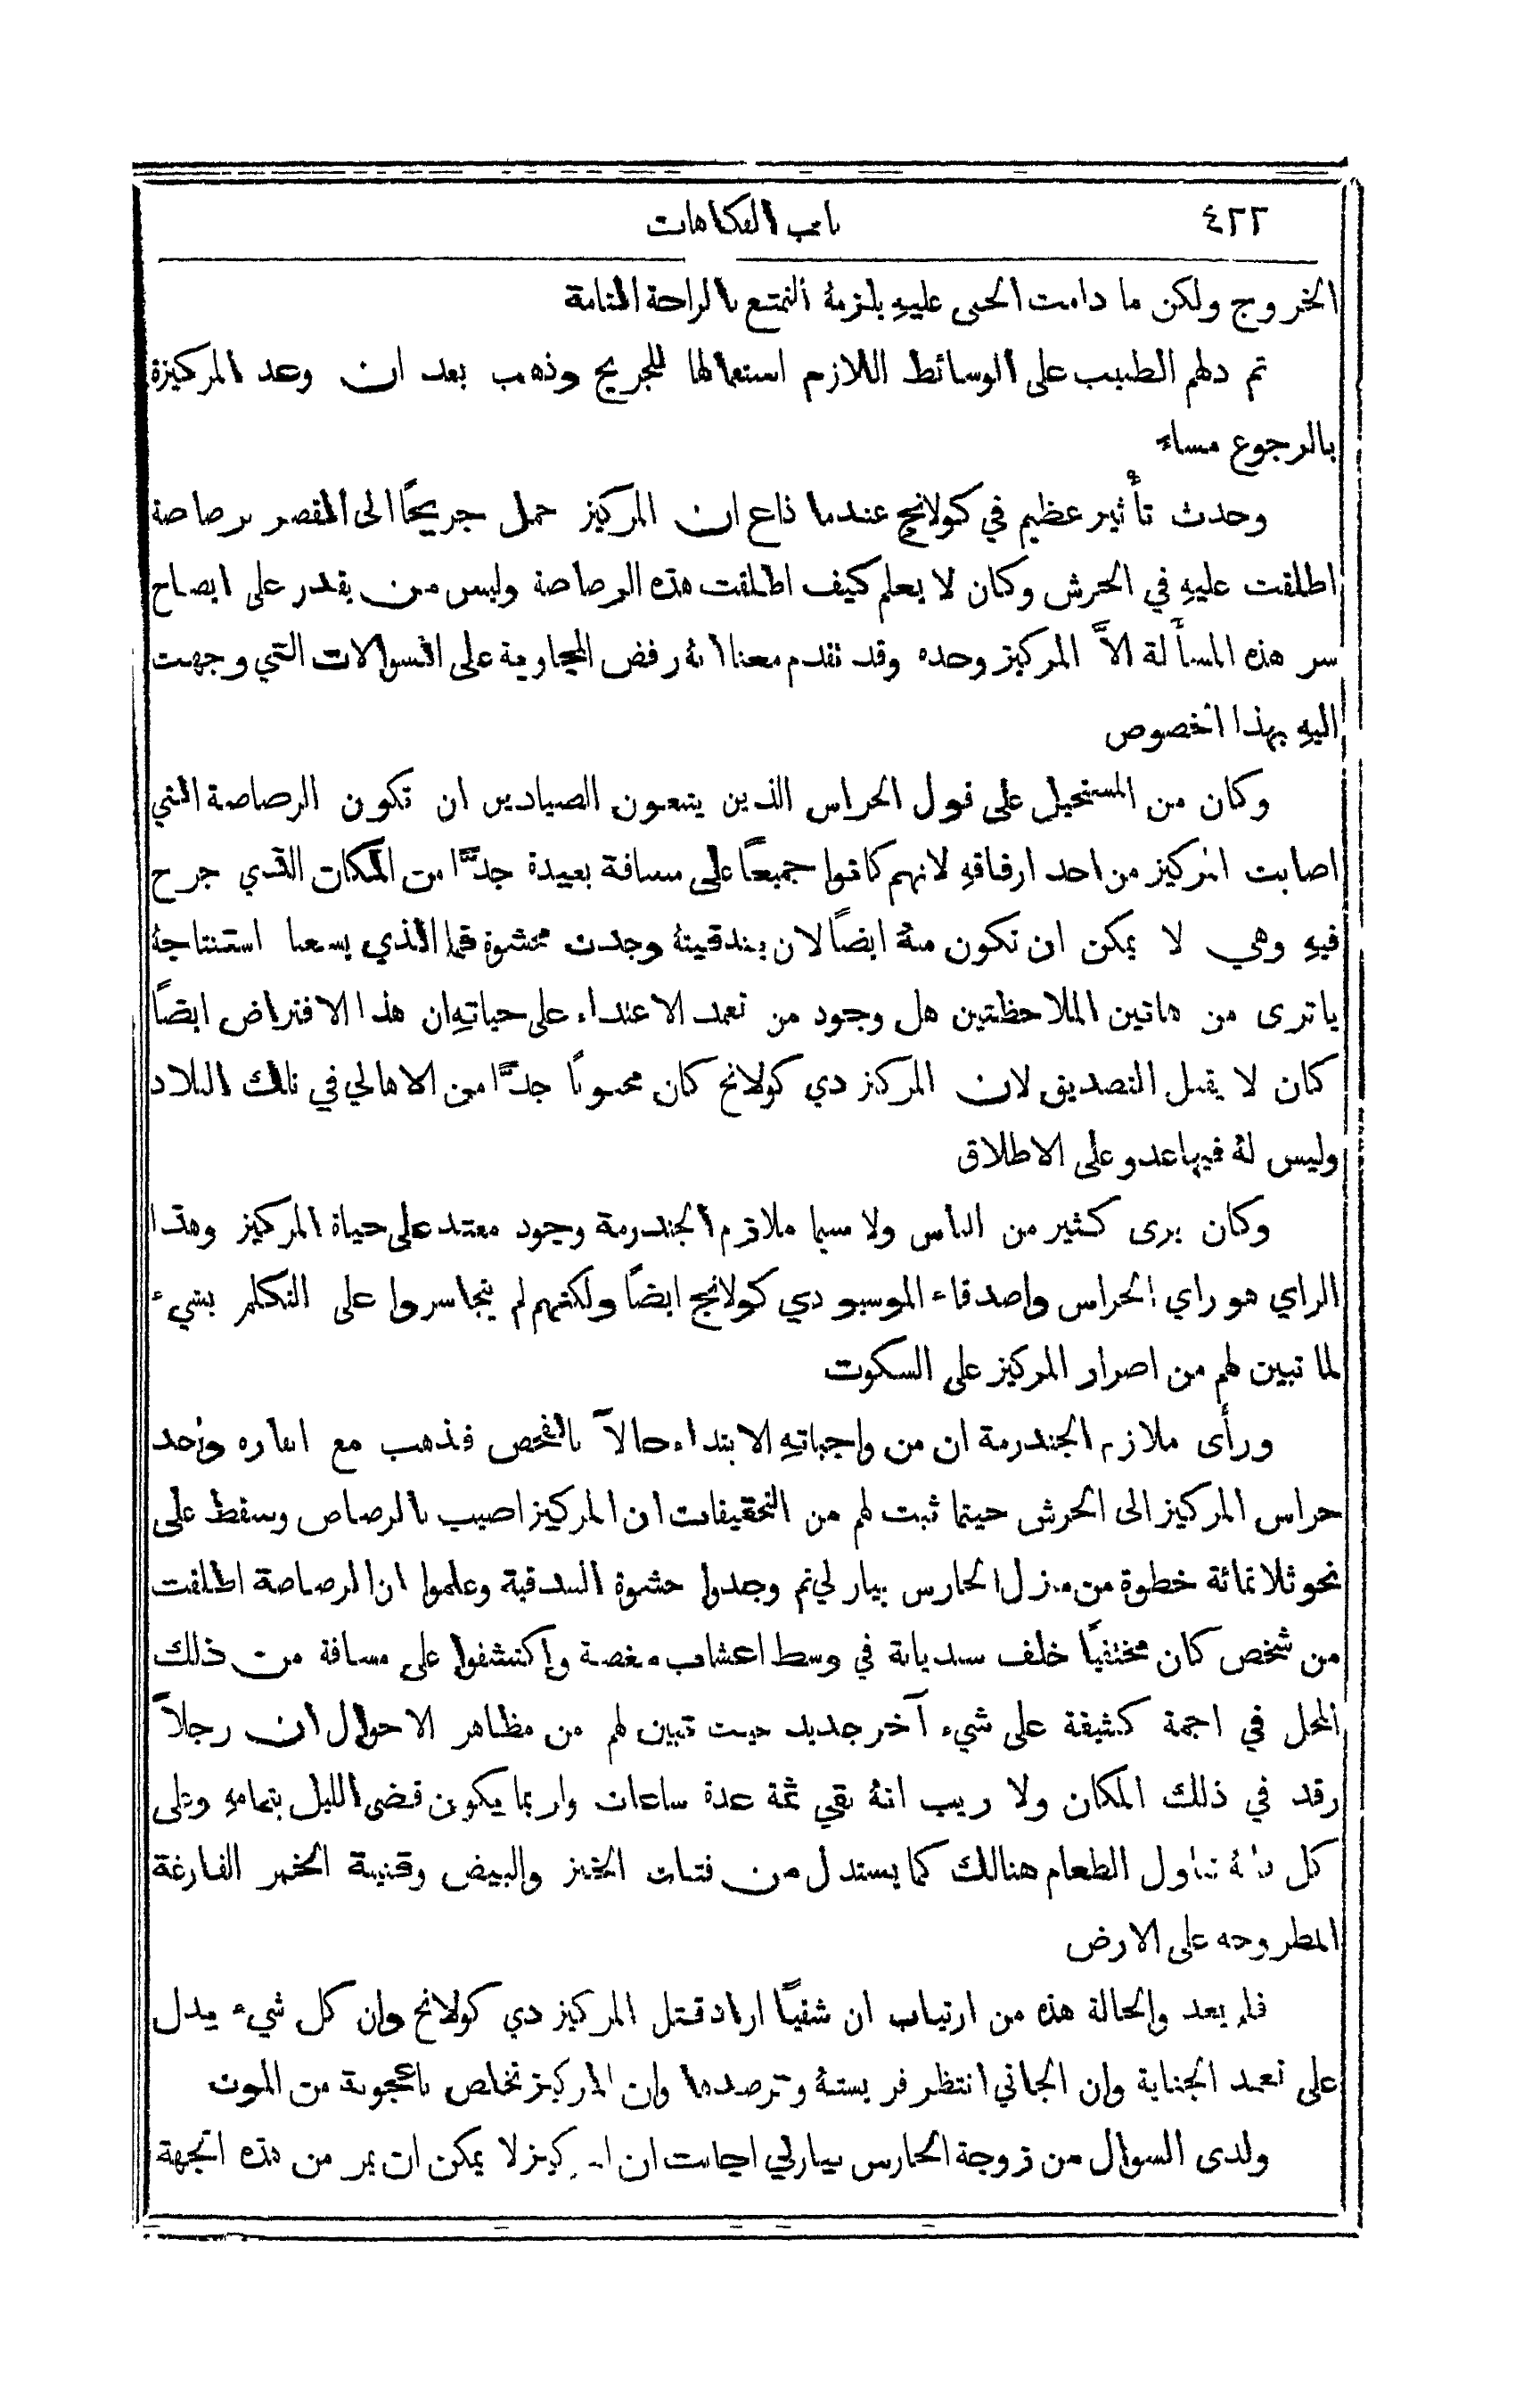 ٤٢٢
باب الفكاهات
الخروج ولكن ما دامت الحمى عليهِ يلزمهُ التمتع بالراحة التامة
ثم دلهم الطبيب على الوسائط اللازم استعمالها للجريح وذهب بعد ان وعد المركيزة
بالرجوع مساء
وحدث تأثير عظيم في كولانج عندما ذاع ان المركيز حمل جريحًا الى القصر برصاصة
اطلقت عليهِ في الحرش وكان لا يعلم كيف اطلقت هذه الرصاصة وليس من يقدر على ايضاح
سر هذه المسأَلة الاَّ المركيز وحده وقد تقدم معنا انهُ رفض المجاوبة على السوالات التي وجهت
اليهِ بهذا الخصوص
وكان من المستحيل على قول الحراس الذين يتبعون الصيادين ان تكون الرصاصة التي
اصابت المركيز من احد ارفاقهِ لانهم كانوا جميعًا على مسافة بعيدة جدًّا من المكان الذي جرح
فيهِ وهي لا يمكن ان تكون منهُ ايضًا لان بندقيتهُ وجدت محشوة فما الذي يسعنا استنتاجهُ
يا ترى من هاتين الملاحظتين هل وجود من تعمد الاعتداء على حياتهِ ان هذا الافتراض ايضًا
كان لا يقبل التصديق لان المركز دي كولانج كان محبوبًا جدًّا من الاهالي في تلك البلاد
وليس لهُ فيها عدو على الاطلاق
وكان يرى كثير من الناس ولا سيما ملازم الجندرمة وجود معتد على حياة المركيز وهذا
الراي هو راي الحراس واصدقاء الموسيو دي كولانج ايضًا ولكنهم لم يتجاسروا على التكلم بشيء
لما تبين لهم من اصرار المركيز على السكوت
ورأى ملازم الجندرمة ان من واجباتهِ الابتداء حالاً بالفحص فذهب مع انفاره واحد
حراس المركيز الى الحرش حيثما ثبت لهم من التحقيقات ان المركيز اصيب بالرصاص وسقط على
نحو ثلاثمائة خطوة من منزل الحارس بيار لي ثم وجدوا حشوة البندقية وعلموا ان الرصاصة اطلقت
من شخص كان مختفيًا خلف سنديانة في وسط اعشاب مغصة واكتشفوا على مسافة من ذلك
المحل في اجمة كثيفة على شيء آخر جديد حيث تبين لهم من مظاهر الاحوال ان رجلاً
رقد في ذلك المكان ولا ريب انهُ بقي ثمة عدة ساعات واربما يكون قضى الليل بتمامهِ وعلى
كل فانهُ تناول الطعام هنالك كما يستدل من فتات الخبز والبيض وقنينة الخمر الفارغة
المطروحه على الارض
فلم يعد والحالة هذه من ارتياب ان شقيًا اراد قتل المركيز دي كولانج وان كل شيء يدل
على تعمد الجناية وان الجاني انتظر فريستهُ وترصدها وان المركيز تخلص باعجوبة من الموت
ولدى السوال من زوجة الحارس بيارلي اجابت ان المركيز لا يمكن ان يمر من هذه الجهة